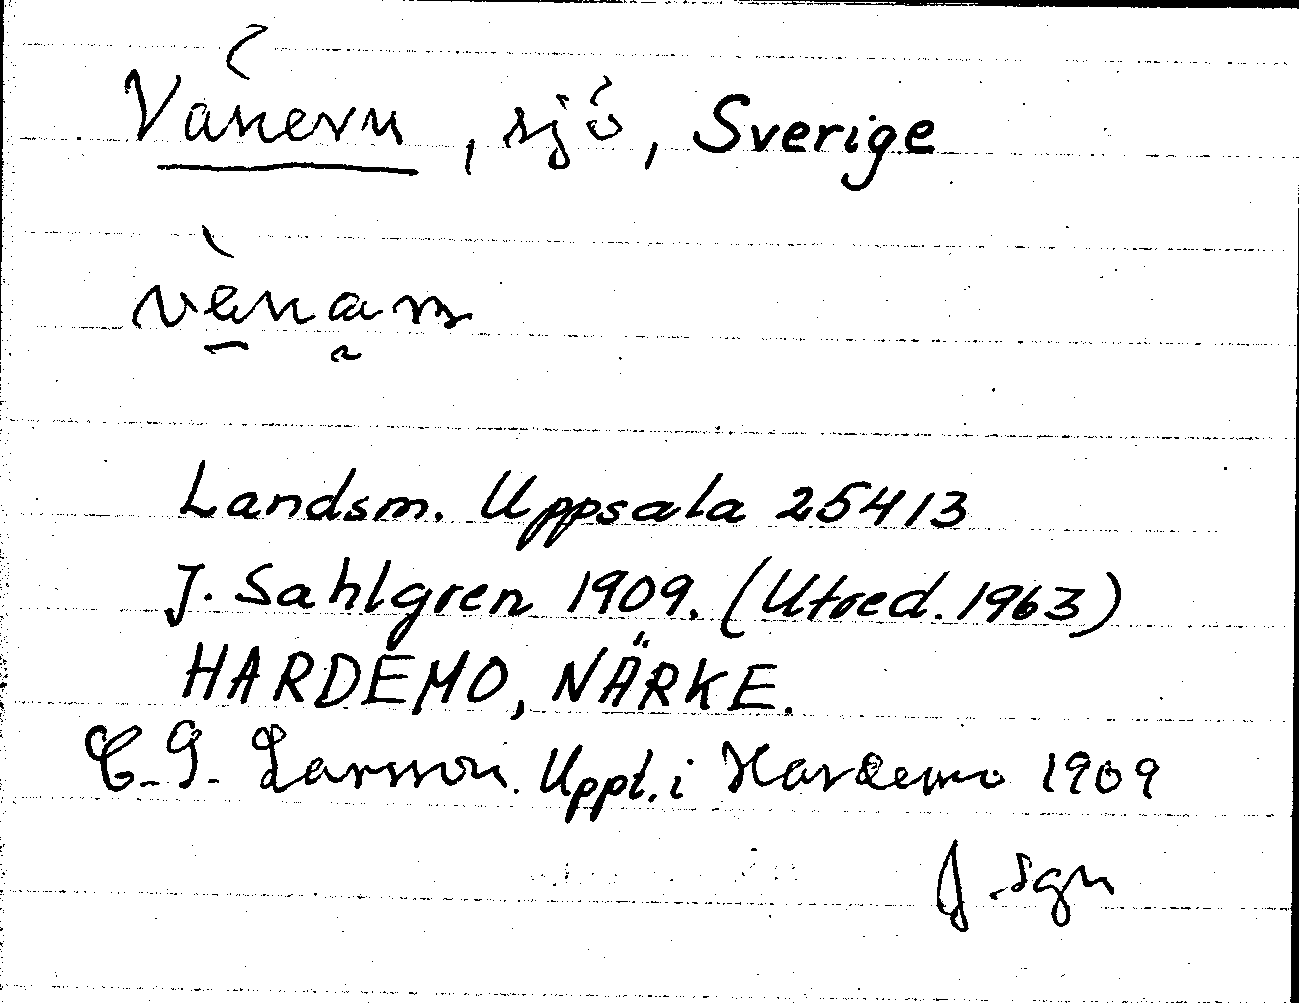 Vänern, sjö, Sverige
vä̀nam
Landsm. Uppsala 25413
J. Sahlgren 1909. (Utred. 1963)
HARDEMO, NÄRKE.
C. G. Larsson. Uppt. i Hardemo 1909
J. Sgn